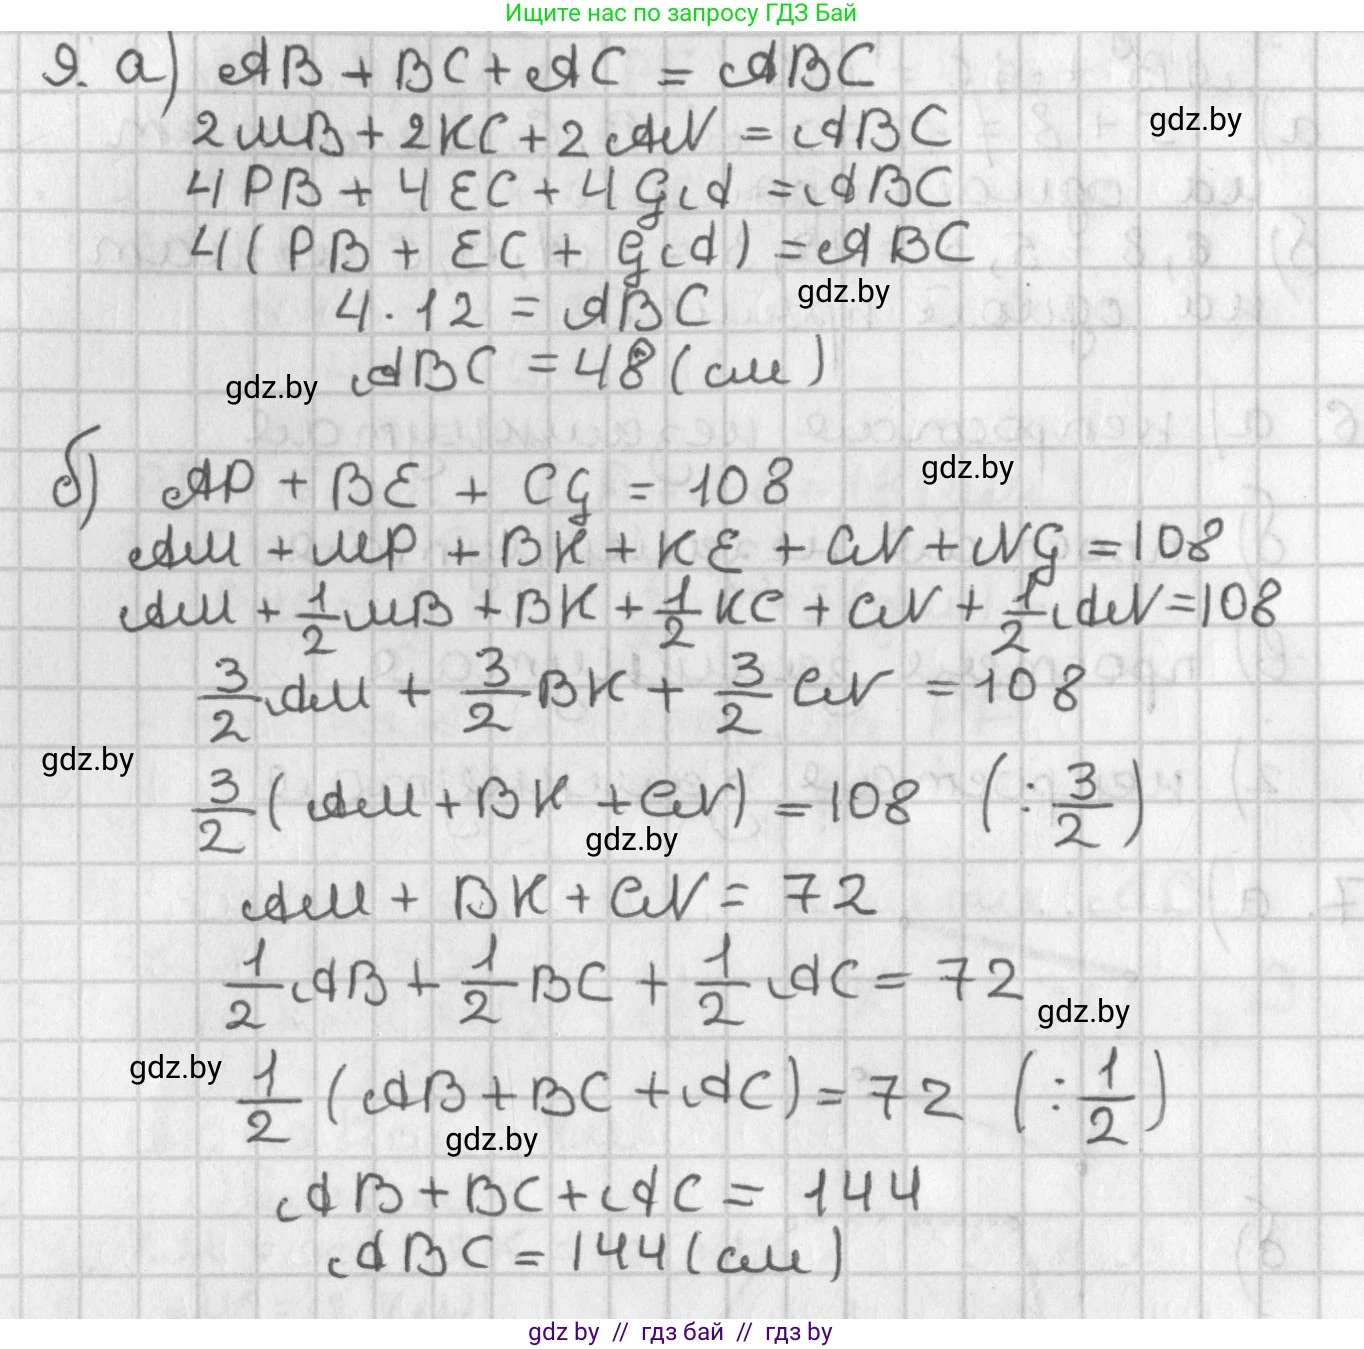 Ищите нас по запросу ГДЗ Бай
9. а) AB + BC + AC = ABC
2MB + 2KC + 2AN = ABC
gdz.by
4PB + 4EC + 4GA = ABC
4(PB + EC + GA) = ABC
gdz.by
4 · 12 = ABC
ABC = 48 (см)
gdz.by
б) AP + BE + CG = 108
gdz.by
AM + MP + BK + KE + CN + NG = 108
AM + 1/2 MB + BK + 1/2 KC + CN + 1/2 AN = 108
3/2 AM + 3/2 BK + 3/2 CN = 108
gdz.by
3/2 (AM + BK + CN) = 108 (: 3/2)
gdz.by
AM + BK + CN = 72
1/2 AB + 1/2 BC + 1/2 AC = 72
gdz.by
gdz.by
1/2 (AB + BC + AC) = 72 (: 1/2)
gdz.by
AB + BC + AC = 144
ABC = 144 (см)
gdz by // гдз бай // гдз by